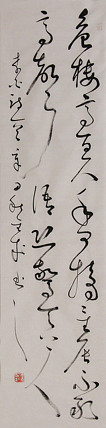 危樓高百尺手可摘星辰不敢
高聲語恐驚天上人
李白詩